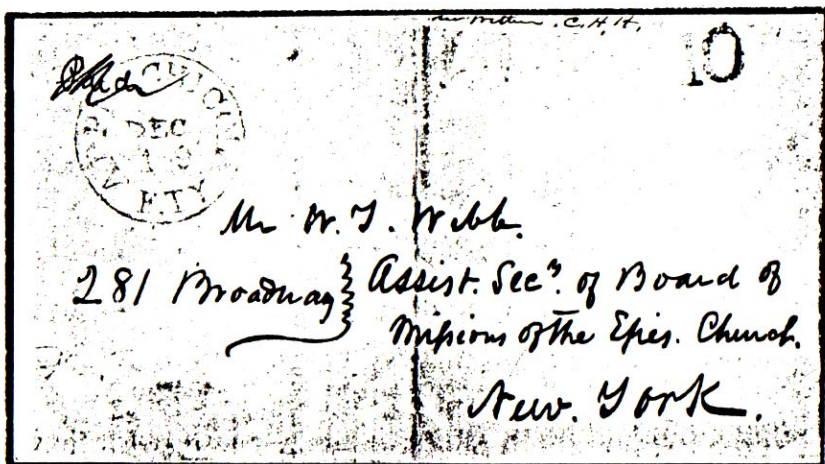 C.H.H.
10
Paid
DEC
F.TY
Mr W. T. Webb.
281 Broadway } Assist. Secy. of Board of
Missions of the Epis. Church.
New. York.